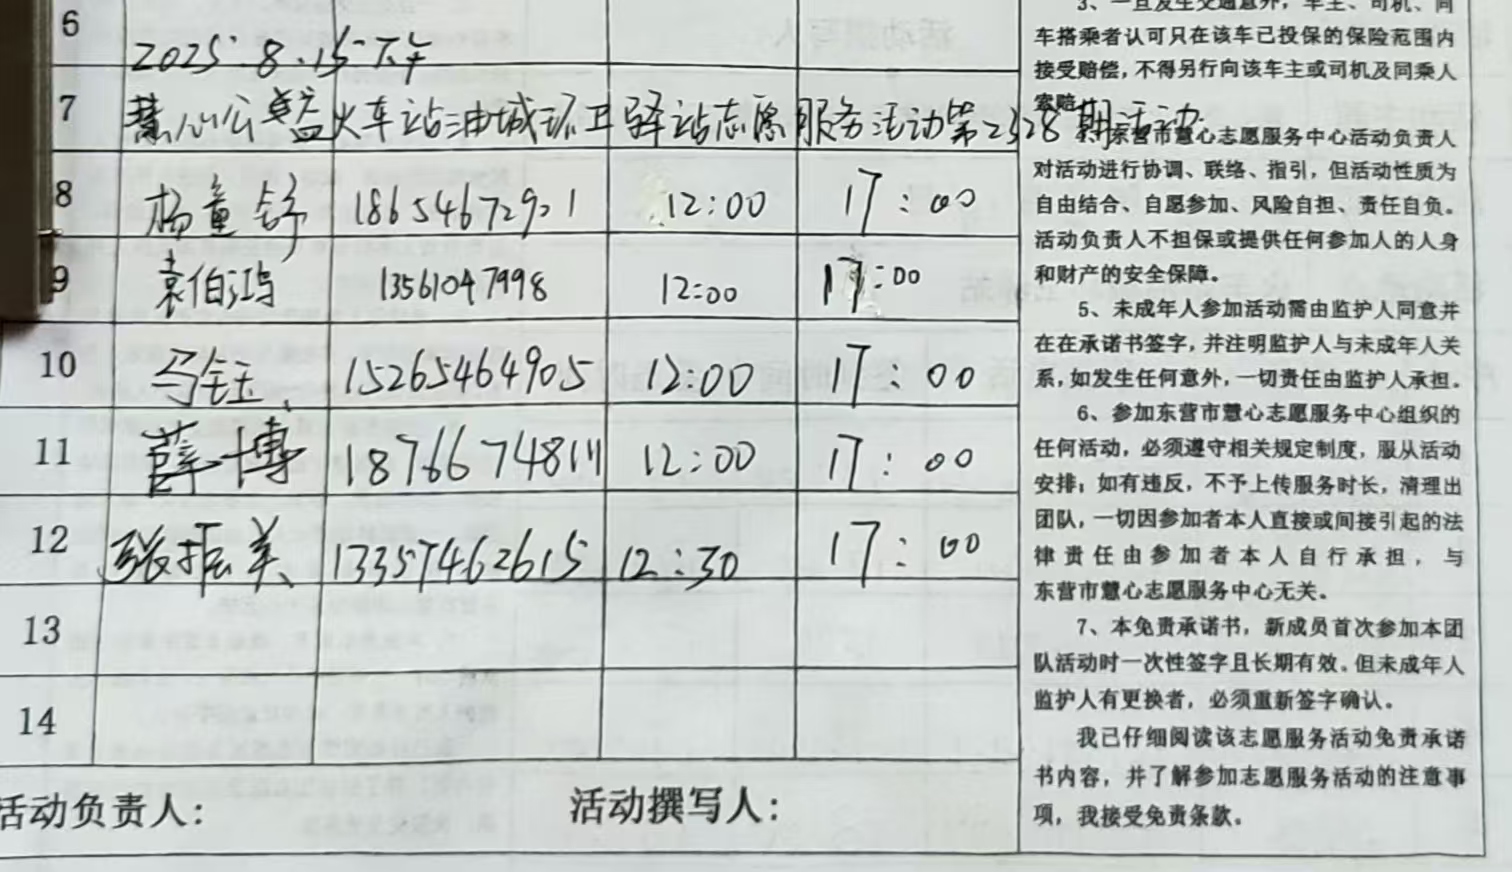 6
2025.8.15下午
7
慧心公益火车站油城环卫驿站志愿服务活动第2328期活动
8 杨童舒 18654672921 12:00 17:00
9 袁伯鸿 13561047998 12:00 17:00
10 马钰 15265464905 12:00 17:00
11 薛博 18766748111 12:00 17:00
12 张振美 13357462615 12:30 17:00
13
14
活动负责人: 活动撰写人:
3、一旦发生交通意外,车主、司机、同
车搭乘者认可只在该车已投保的保险范围内
接受赔偿,不得另行向该车主或司机及同乘人
索赔
东营市慧心志愿服务中心活动负责人
对活动进行协调、联络、指引,但活动性质为
自由结合、自愿参加、风险自担、责任自负。
活动负责人不担保或提供任何参加人的人身
和财产的安全保障。
5、未成年人参加活动需由监护人同意并
在在承诺书签字,并注明监护人与未成年人关
系,如发生任何意外,一切责任由监护人承担。
6、参加东营市慧心志愿服务中心组织的
任何活动,必须遵守相关规定制度,服从活动
安排;如有违反,不予上传服务时长,清理出
团队,一切因参加者本人直接或间接引起的法
律责任由参加者本人自行承担,与
东营市慧心志愿服务中心无关。
7、本免责承诺书,新成员首次参加本团
队活动时一次性签字且长期有效。但未成年人
监护人有更换者,必须重新签字确认。
我已仔细阅读该志愿服务活动免责承诺
书内容,并了解参加志愿服务活动的注意事
项,我接受免责条款。